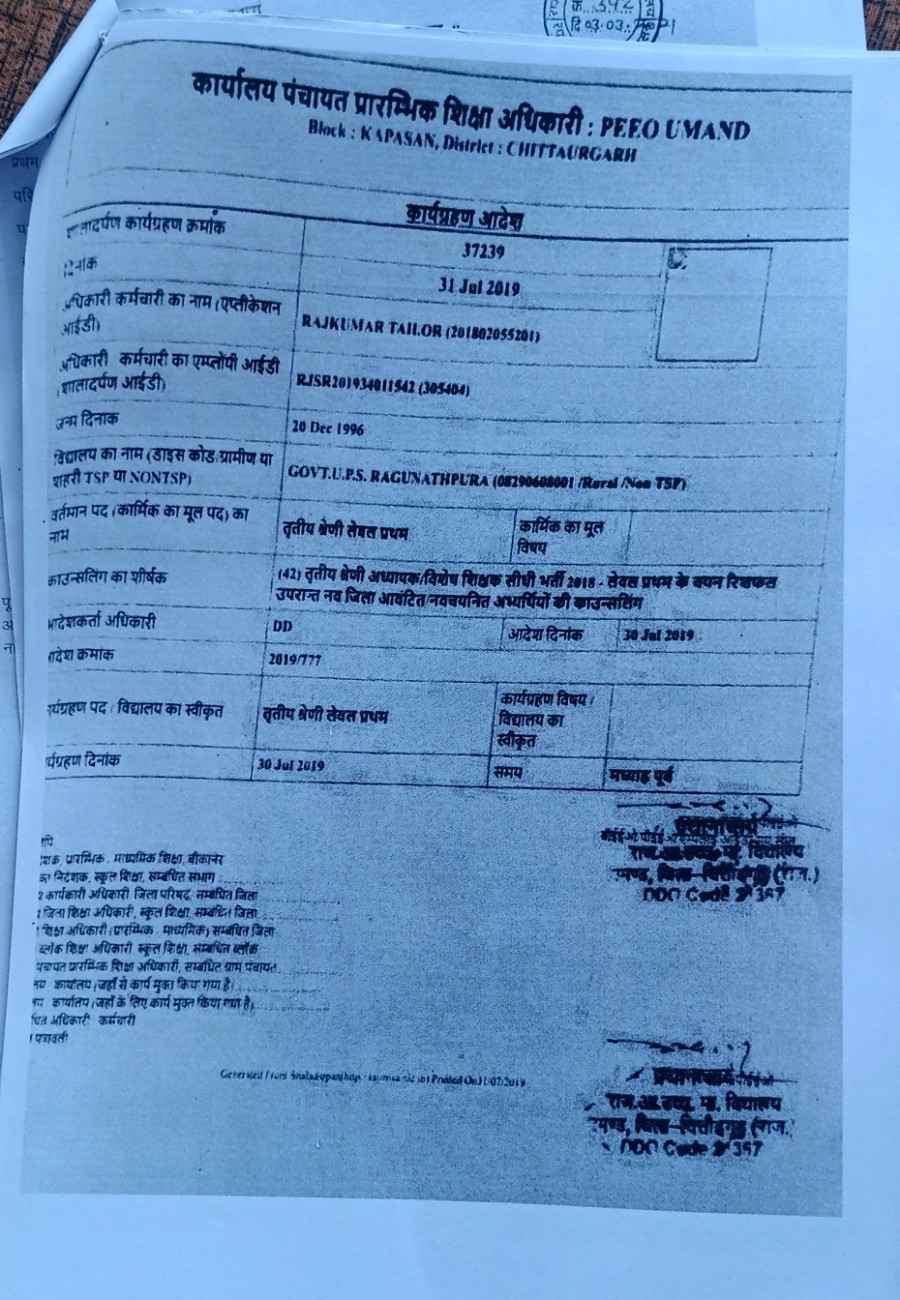 दि 03.03.
कार्यालय पंचायत प्रारम्भिक शिक्षा अधिकारी : PEEO UMAND
Block : KAPASAN, District : CHITTAURGARH
कार्यग्रहण आदेश
कार्यग्रहण क्रमांक 37239
31 Jul 2019
कर्मचारी का नाम (एप्लीकेशन
आईडी) RAJKUMAR TAILOR (201802055201)
कर्मचारी का एम्प्लोयी आईडी
शालादर्पण आईडी) RJSR201934011542 (305404)
जन्म दिनांक 20 Dec 1996
विद्यालय का नाम (डाइस कोड/ग्रामीण या
शहरी TSP या NONTSP) GOVT.U.P.S. RAGUNATHPURA (08290608001 /Rural /Non TSP)
वर्तमान पद (कार्मिक का मूल पद) का
नाम तृतीय श्रेणी लेवल प्रथम कार्मिक का मूल
विषय
काउन्सलिंग का शीर्षक (42) तृतीय श्रेणी अध्यापक/विशेष शिक्षक सीधी भर्ती 2018 - लेवल प्रथम के चयन
उपरान्त नव जिला आवंटित/नवचयनित अभ्यर्थियों की काउन्सलिंग
अधिकारी DD आदेश दिनांक 30 Jul 2019
क्रमांक 2019/777
पद / विद्यालय का स्वीकृत तृतीय श्रेणी लेवल प्रथम कार्यग्रहण विषय /
विद्यालय का
स्वीकृत
दिनांक 30 Jul 2019 समय पूर्व
विद्यालय
DDO Code
प्रारम्भिक माध्यमिक शिक्षा, बीकानेर
निदेशक, स्कूल शिक्षा, सम्बंधित सभाग
कार्यकारी अधिकारी जिला परिषद, सम्बंधित जिला
जिला शिक्षा अधिकारी, स्कूल शिक्षा, सम्बंधित जिला
शिक्षा अधिकारी (प्रारम्भिक माध्यमिक) सम्बंधित जिला
ब्लॉक शिक्षा अधिकारी स्कूल शिक्षा, सम्बंधित ब्लॉक
पंचायत प्रारम्भिक शिक्षा अधिकारी, सम्बंधित ग्राम पंचायत
कार्यालय (जहाँ से कार्य मुक्त किया गया है)
कार्यालय (जहाँ के लिए कार्य मुक्त किया गया है)
अधिकारी कर्मचारी
Generated From Printed On
राज.आ.उच्च. मा. विद्यालय
DDO Code